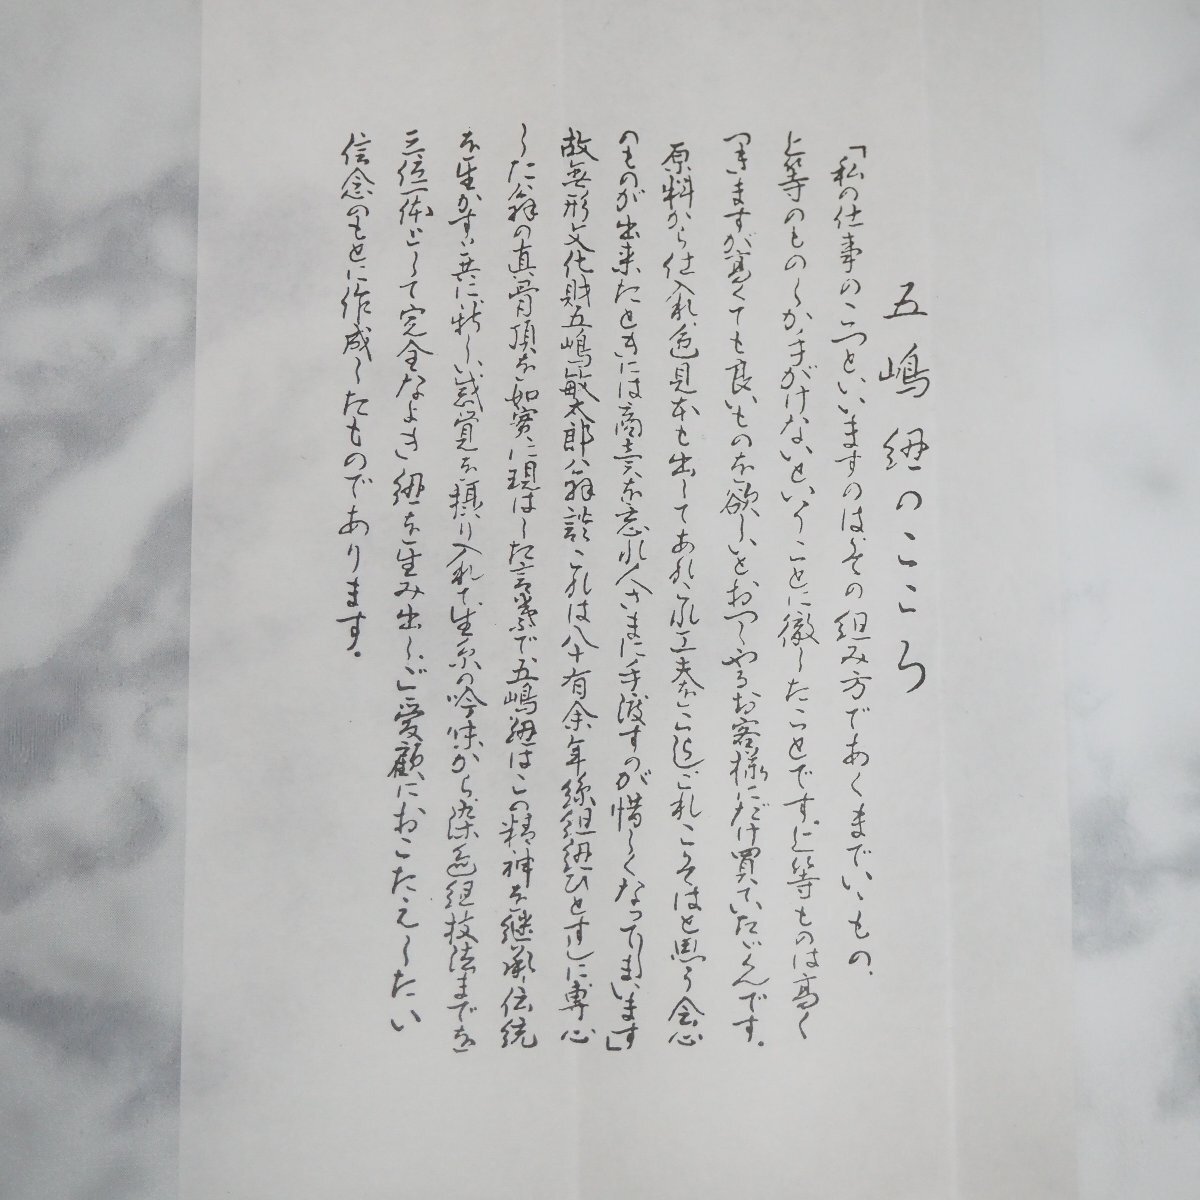 五嶋紐のこころ
「私の仕事のこつといいますのは、その組み方であくまでいいもの、
上等のものしか手がけないということに徹したことです。上等ものは高く
つきますが、高くても良いものを欲しいとおっしゃるお客様にだけ買っていただくんです。
原料から仕入れ、色見本も出してあれこれ工夫をこらしこれこそはと思う会心
のものが出来たときには商売を忘れ人さまに手渡すのが惜しくなってしまいます」
故無形文化財五嶋敏太郎翁談、これは八十有余年絲組紐ひとすじに専心
した翁の真骨頂を如実に現はした言葉で、五嶋紐はこの精神を継承、伝統
を生かすと共に新しい感覚を採り入れて生糸の吟味から染色組技法までを
三位一体として完全なよき紐を生み出し、ご愛顧におこたえしたい
信念のもとに作成したものであります。